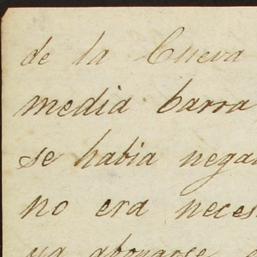 de la Cueva
media barra
se habia nega
no era neces
ya abonarse